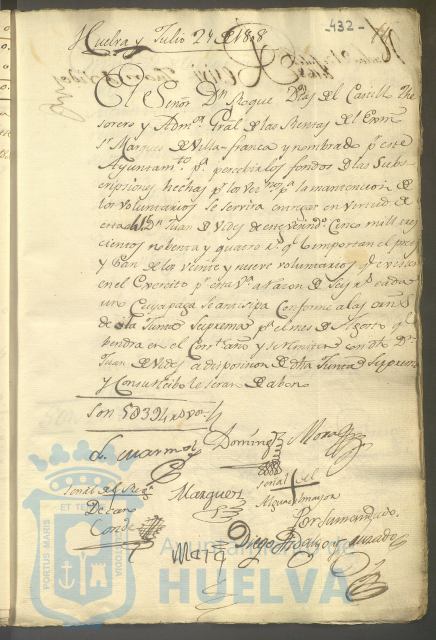 -432-
Huelva y Julio 24 de 1808
El Señor Dn Roque Días del Castillo The
sorero y Admor Gral de las Rentas del Exmo
Sr Marques de Villa-franca y nombrado pr este
Ayuntamto pa percebir los fondos de las Subs
cripsiones hechas pr los Vecnos pa la mantencion de
los voluntarios se servira entregar en virtud de
esta a Dn Juan de Vides cinco mill tres
cientos nobenta y quatro rs qe importan el prest
y Pan de los veinte y nueve voluntarios qe existen
en el Exercito pr esta Va a razon de Seis rs cada
uno Cuya paga se antisipa Conforme a las orns
de la Junta Suprema pa el mes de Agosto qe
bendra en el Corte año y se remitira con dho Dn
Juan de Vides a disposicion de dha Junta Suprema
y Con su recibo le seran de abono
Son 5D394 rs von
Marmol
Domingz
Mora
señal del Regr
De can
Conde
Marques
señal del
Alguacil mayor
Por su mandado
Diego Hidalgo Quexado
PORTUS MARIS
ET TERRAE
CUSTODIA
Ayuntamiento de
HUELVA